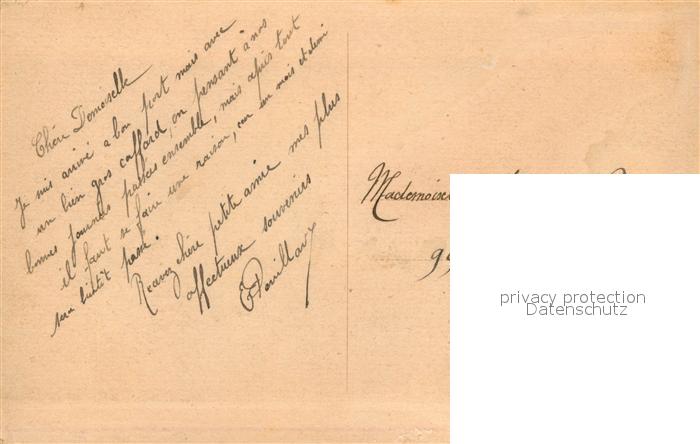 Chère Demoselle
Je suis arrivé a bon port mais avec
un bien gros caffard, en pensant à nos
bonnes journées passées ensemble, mais après tout
il faut se faire une raison, car un mois et demi
sera bientôt passé.
Recevez chère petite amie mes plus
affectueux souvenirs
Mademoise
99
privacy protection
Datenschutz